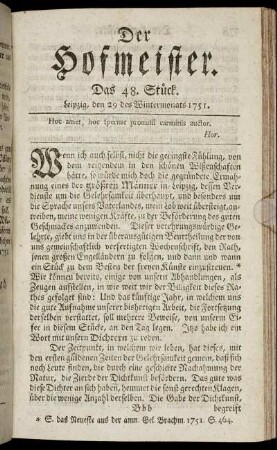 Der
Hofmeister.
Das 48. Stück.
Leipzig, den 29 des Wintermonats 1751.
Hoc amet, hoc spernat promissi carminis auctor.
Hor.
Wenn ich auch selbst, nicht die geringste Fühlung, von
dem reizenden in den schönen Wißenschaften
hätte, so würde mich doch die gegründete Ermah-
nung eines der größten Männer in Leipzig, dessen Ver-
dienste um die Gelehrsamkeit überhaupt, und besonders um
die Sprache unsers Vaterlandes, mein Lob weit übersteigt, an-
treiben, meine wenigen Kräfte, zu der Beförderung des guten
Geschmackes anzuwenden. Dieser verehrungswürdige Ge-
lehrte, giebt uns in der überausgütigen Beurtheilung der von
uns gemeinschaftlich verfertigten Wochenschrift, den Rath,
jenen großen Engeländern zu folgen, und dann und wann
ein Stück zu dem Besten der freyen Künste einzustreuen. *
Wir können bereits, einige von unsern Abhandlungen, als
Zeugen aufstellen, in wie weit wir der Billigkeit dieses Ra-
thes gefolgt sind: Und das künftige Jahr, in welchem uns
die gute Aufnahme unserer bisherigen Arbeit, die Fortsetzung
derselben verstattet, soll mehrere Beweise, von unserm Ei-
fer in diesem Stücke, an den Tag legen. Itzt habe ich ein
Wort mit unsern Dichtern zu reden.
Der Zeitpunkt, in welchem wir leben, hat dieses, mit
den ersten güldenen Zeiten der Gelehrsamkeit gemein, daß sich
noch Leute finden, die durch eine geschickte Nachahmung der
Natur, die Zierde der Dichtkunst befördern. Das gute was
diese Dichter an sich haben, hemmet die sonst gerechten Klagen,
über die wenige Anzahl derselben. Die Gabe der Dichtkunst,
Bbb begreift
* S. das Neueste aus der anm. Gel. Brachm. 1751. S. 464.